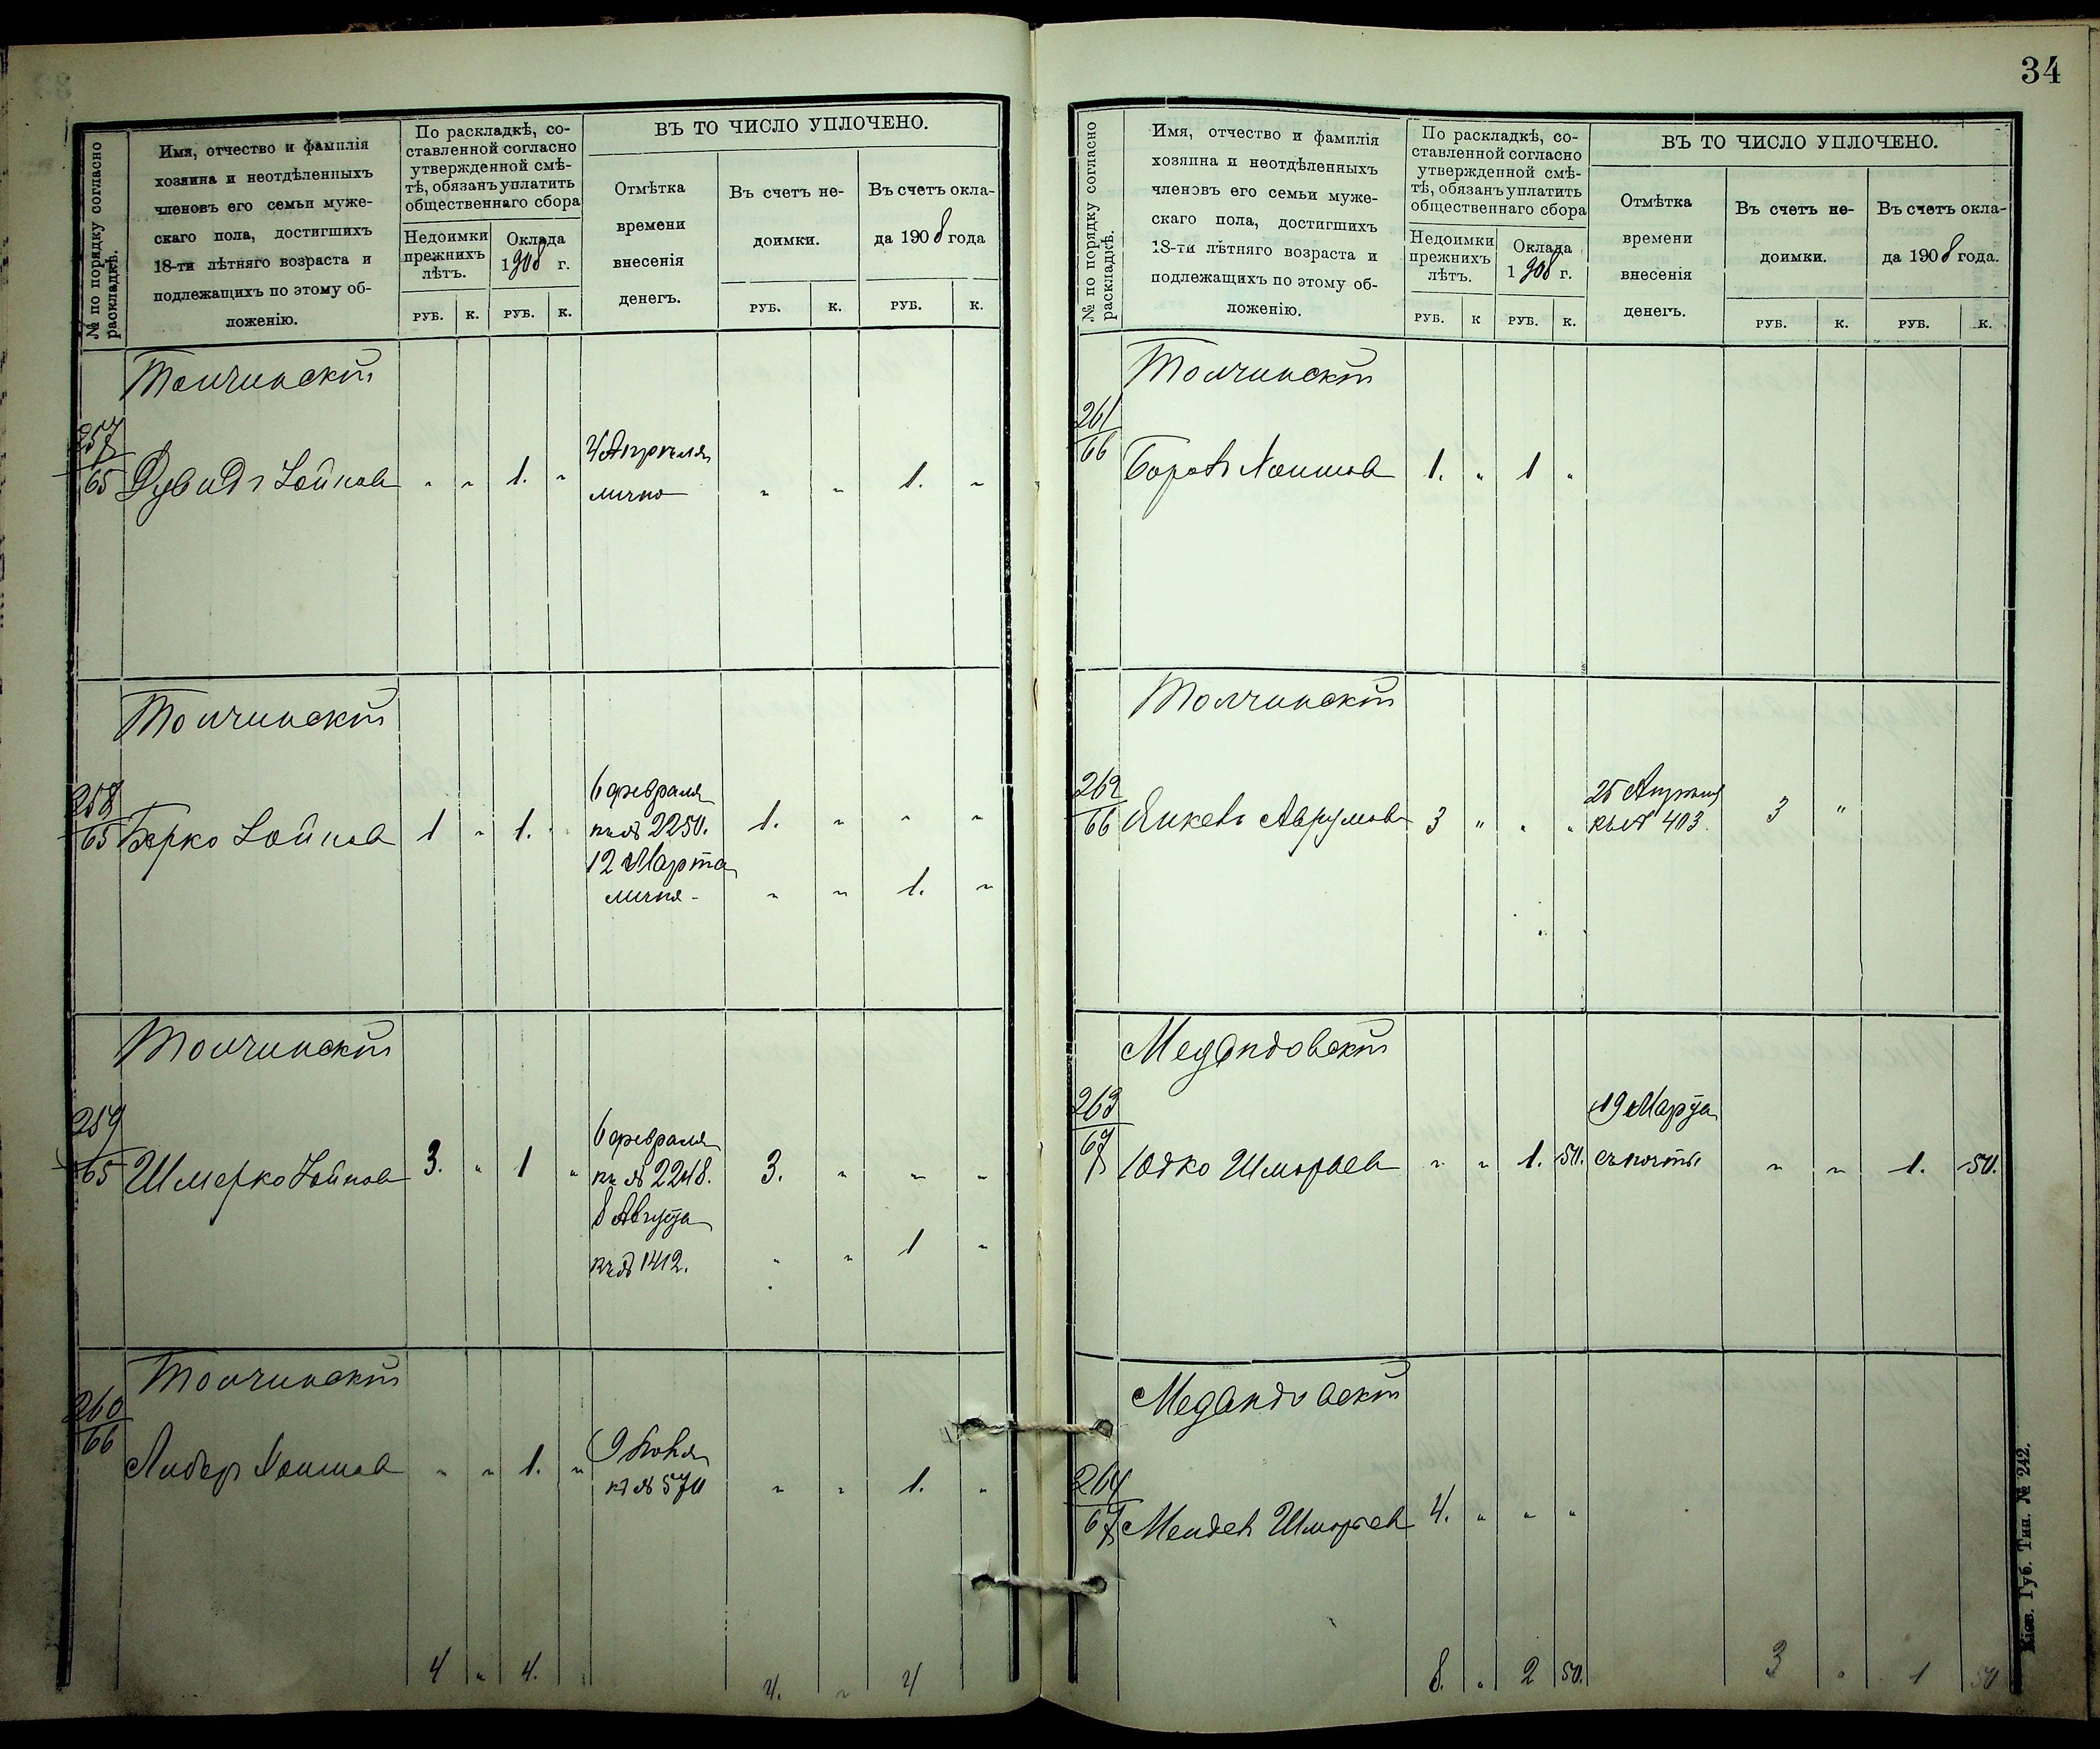 № по порядку согласно раскладкѣ.
Имя, отчество и фамилія
хозяина и неотдѣленныхъ
членовъ его семьи муже-
скаго пола, достигшихъ
18-ти лѣтняго возраста и
подлежащихъ по этому об-
ложенію.
По раскладкѣ, со-
ставленной согласно
утвержденной смѣ-
тѣ, обязанъ уплатить
общественнаго сбора
Недоимки
прежнихъ
лѣтъ.
Оклада
1908 г.
РУБ. К. РУБ. К.
ВЪ ТО ЧИСЛО УПЛОЧЕНО.
Отмѣтка
времени
внесенія
денегъ.
Въ счетъ не-
доимки.
Въ счетъ окла-
да 1908 года
РУБ. К. РУБ. К.
Толчинскій
257
65 Дувидъ Хоймов " " 1. " 4 Апрѣля
лично " " 1. "
Толчинскій
258
65 Берко 1 " 1. " 6 февраля
къ № 2250. 1. " " "
12 Марта
лично - " " 1. "
Толчинскій
259
65 Шмерко 3. " 1 " 6 февраля
къ № 2248. 3. " " "
8 Августа
къ № 1412. " " 1 "
Толчинскій
260
66 Либер " " 1. " 9 Іюня
къ № 570 " " 1. "
4 " 4. " 4. " 4
34
№ по порядку согласно раскладкѣ.
Имя, отчество и фамилія
хозяина и неотдѣленныхъ
членовъ его семьи муже-
скаго пола, достигшихъ
18-ти лѣтняго возраста и
подлежащихъ по этому об-
ложенію.
По раскладкѣ, со-
ставленной согласно
утвержденной смѣ-
тѣ, обязанъ уплатить
общественнаго сбора
Недоимки
прежнихъ
лѣтъ.
Оклада
1908 г.
РУБ. К РУБ. К.
ВЪ ТО ЧИСЛО УПЛОЧЕНО.
Отмѣтка
времени
внесенія
денегъ.
Въ счетъ не-
доимки.
Въ счетъ окла-
да 1908 года.
РУБ. К. РУБ. К.
Толчинскій
261
66 1. " 1 "
Толчинскій
262
66 Янкель Аврумов 3 " " " 25 Апрѣля
къ № 403. 3 "
263
67 Юдко Шморьев " " 1. 50. 19 Марта
съ почты " " 1. 50.
264
67 Мендель Шморьев 4. " " "
8. " 2 50. 3 " 1 50
Кіев. Губ. Тип. № 242.